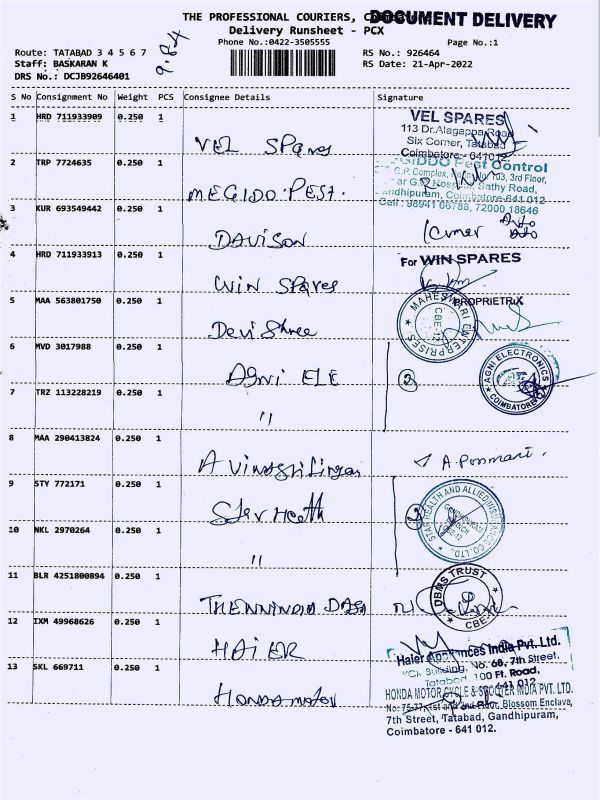 THE PROFESSIONAL COURIERS,
DOCUMENT DELIVERY
Delivery Runsheet - PCX
Phone No.:0422-3505555
Page No.:1
9.84
Route: TATABAD 3 4 5 6 7
Staff: BASKARAN K
DRS No.: DCJB92646401
RS No.: 926464
RS Date: 21-Apr-2022
S No Consignment No Weight PCS Consignee Details Signature
1 HRD 711933909 0.250 1
VEL Spares
VEL SPARES
113 Dr.Alagappa Road
Six Corner, Tatabad
Coimbatore - 641012
2 TRP 7724635 0.250 1
MEGIDO PEST.
GIDDO Pest Control
G.P. Complex, 103, 3rd Floor,
G.P. Hospital, Sathy Road,
Gandhipuram, Coimbatore-641 012
Cell : 98941 66788, 72000 18646
3 KUR 693549442 0.250 1
DAVISON
Kumar
4 HRD 711933913 0.250 1
Win Spares
For WIN SPARES
PROPRIETRIX
5 MAA 563801750 0.250 1
Devi Shree
MAHESWARI ENTERPRISES
CBE-12
6 MVD 3017988 0.250 1
Agni ELE
2
AGNI ELECTRONICS
COIMBATORE
7 TRZ 113228219 0.250 1
"
8 MAA 290413824 0.250 1
A. Ponmari.
9 STY 772171 0.250 1
Star Heath
2
STAR HEALTH AND ALLIED INSURANCE CO. LTD.
10 NKL 2970264 0.250 1
"
11 BLR 4251800894 0.250 1
THENNINDIA DBSM
DBMS TRUST
CBE
12 IXM 49968626 0.250 1
HAiER
Haier Appliances India Pvt. Ltd.
Building, No. 68, 7th Street,
Tatabad, 100 Ft. Road,
641 012
13 SKL 669711 0.250 1
Honda motor
HONDA MOTOR CYCLE & SCOOTER INDIA PVT. LTD.
No: 75-77, 1st and 2nd Floor, Blossom Enclave,
7th Street, Tatabad, Gandhipuram,
Coimbatore - 641 012.